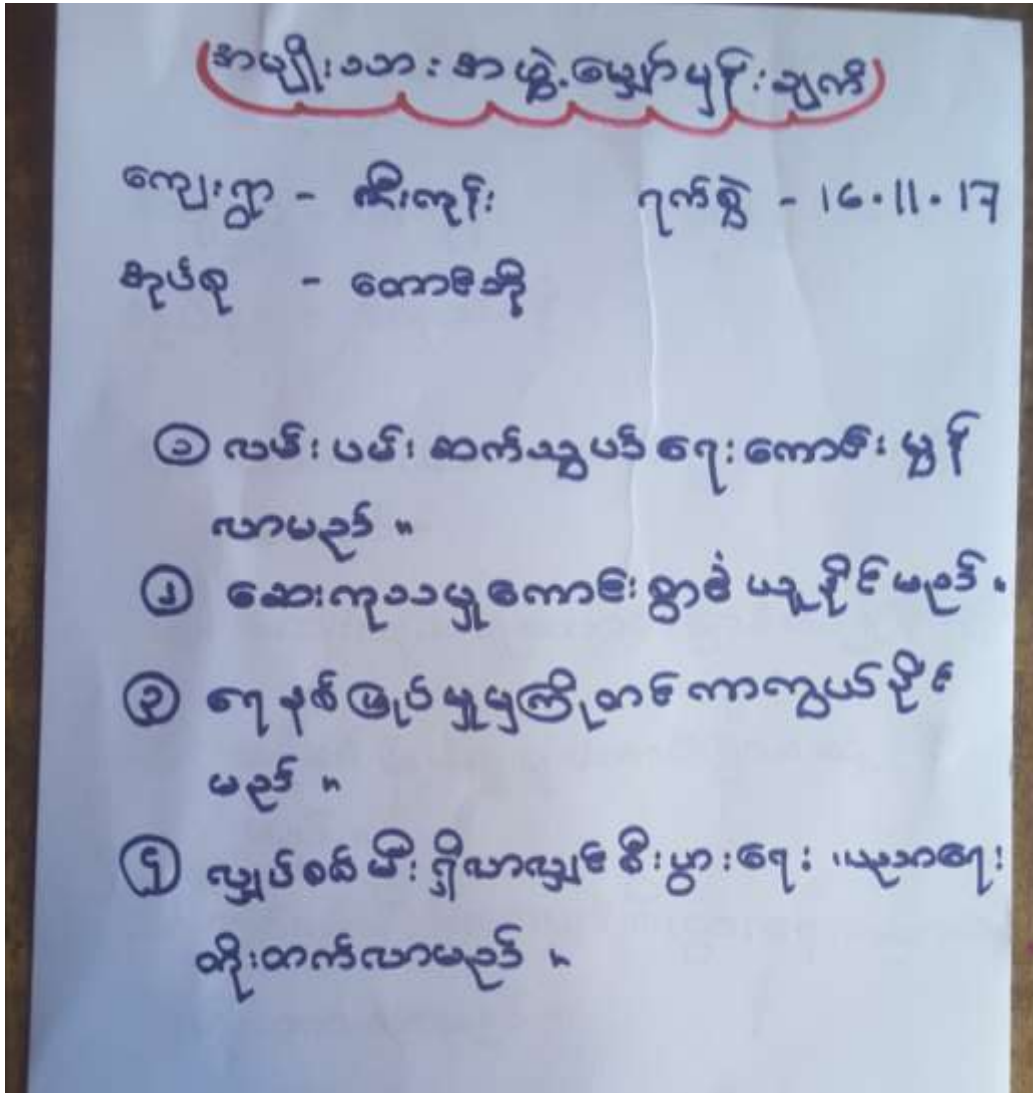 အမျိုးသားအဖွဲ့မျှော်မှန်းချက်
ကျေးရွာ - ဇီးကုန်း ရက်စွဲ - 16.11.17
အုပ်စု - တောင်ဘို
၁ လမ်းပမ်းဆက်သွယ်ရေးကောင်းမွန်
လာမည်။
၂ ဆေးကုသမှုကောင်းစွာခံယူနိုင်မည်။
၃ ရေနစ်မြုပ်မှုမှကြိုတင်ကာကွယ်နိုင်
မည်။
၄ လျှပ်စစ်မီးရှိလာလျှင်စီးပွားရေး ပညာရေး
တိုးတက်လာမည်။